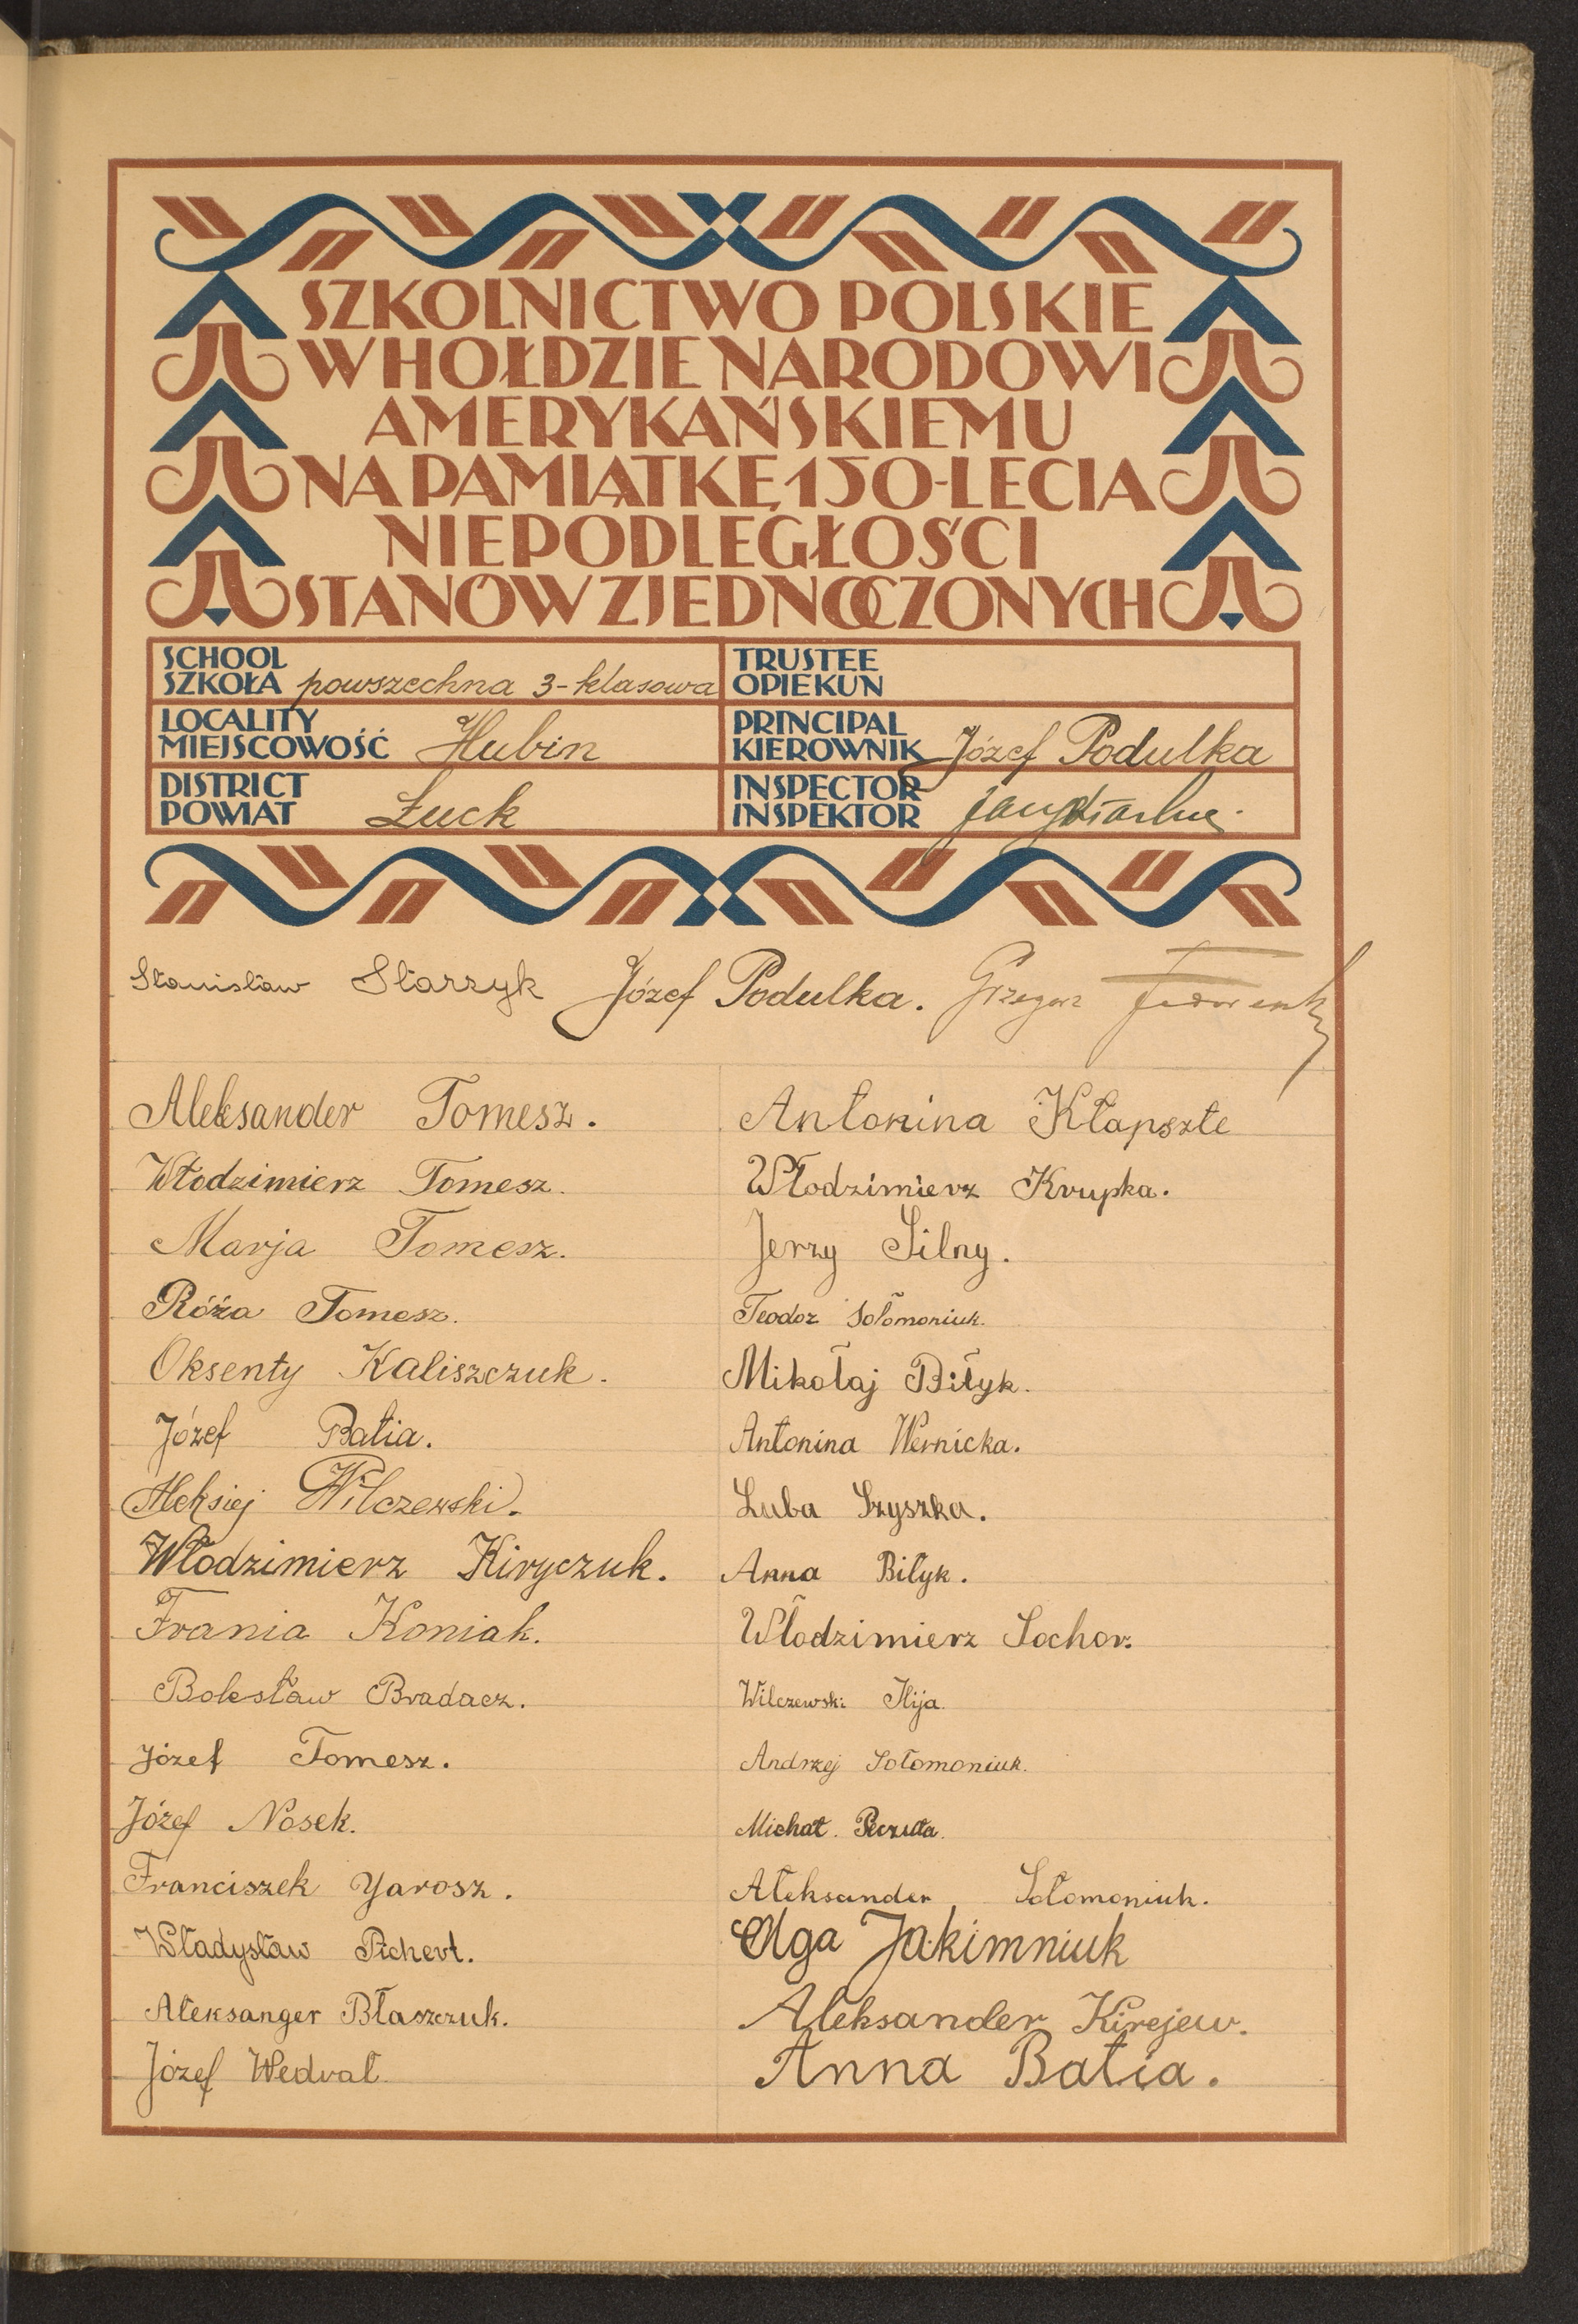 SZKOLNICTWO POLSKIE
W HOŁDZIE NARODOWI
AMERYKAŃSKIEMU
NA PAMIĄTKĘ 150-LECIA
NIEPODLEGŁOŚCI
STANÓW ZJEDNOCZONYCH
SCHOOL
SZKOŁA powszechna 3-klasowa
TRUSTEE
OPIEKUN
LOCALITY
MIEJSCOWOŚĆ Hubin
PRINCIPAL
KIEROWNIK Józef Podulka
DISTRICT
POWIAT Łuck
INSPECTOR
INSPEKTOR
Stanisław Starzyk Józef Podulka. Grzegorz
Aleksander Tomesz.
Włodzimierz Tomesz.
Marja Tomesz.
Róża Tomesz.
Oksenty Kaliszczuk.
Józef Batia.
Aleksiej Wilczewski.
Włodzimierz Kiryczuk.
Frania Koniak.
Bolesław Bradacz.
Józef Tomesz.
Józef Nosek.
Franciszek Yarosz.
Władysław Pichert.
Ałeksanger Błaszczuk.
Józef Wedrat
Antonina Kłapszte
Włodzimierz Krupka.
Jerzy Silny.
Teodoz Sołomoniuk.
Mikołaj Biłyk.
Antonina Wernicka.
Luba Szyszka.
Anna Biłyk.
Włodzimierz Sochor.
Wilczewski Ilija.
Andrzej Sołomoniuk.
Michał.
Ałeksander Sołomoniuk.
Olga Jakimniuk
Aleksander Kirejew.
Anna Batia.